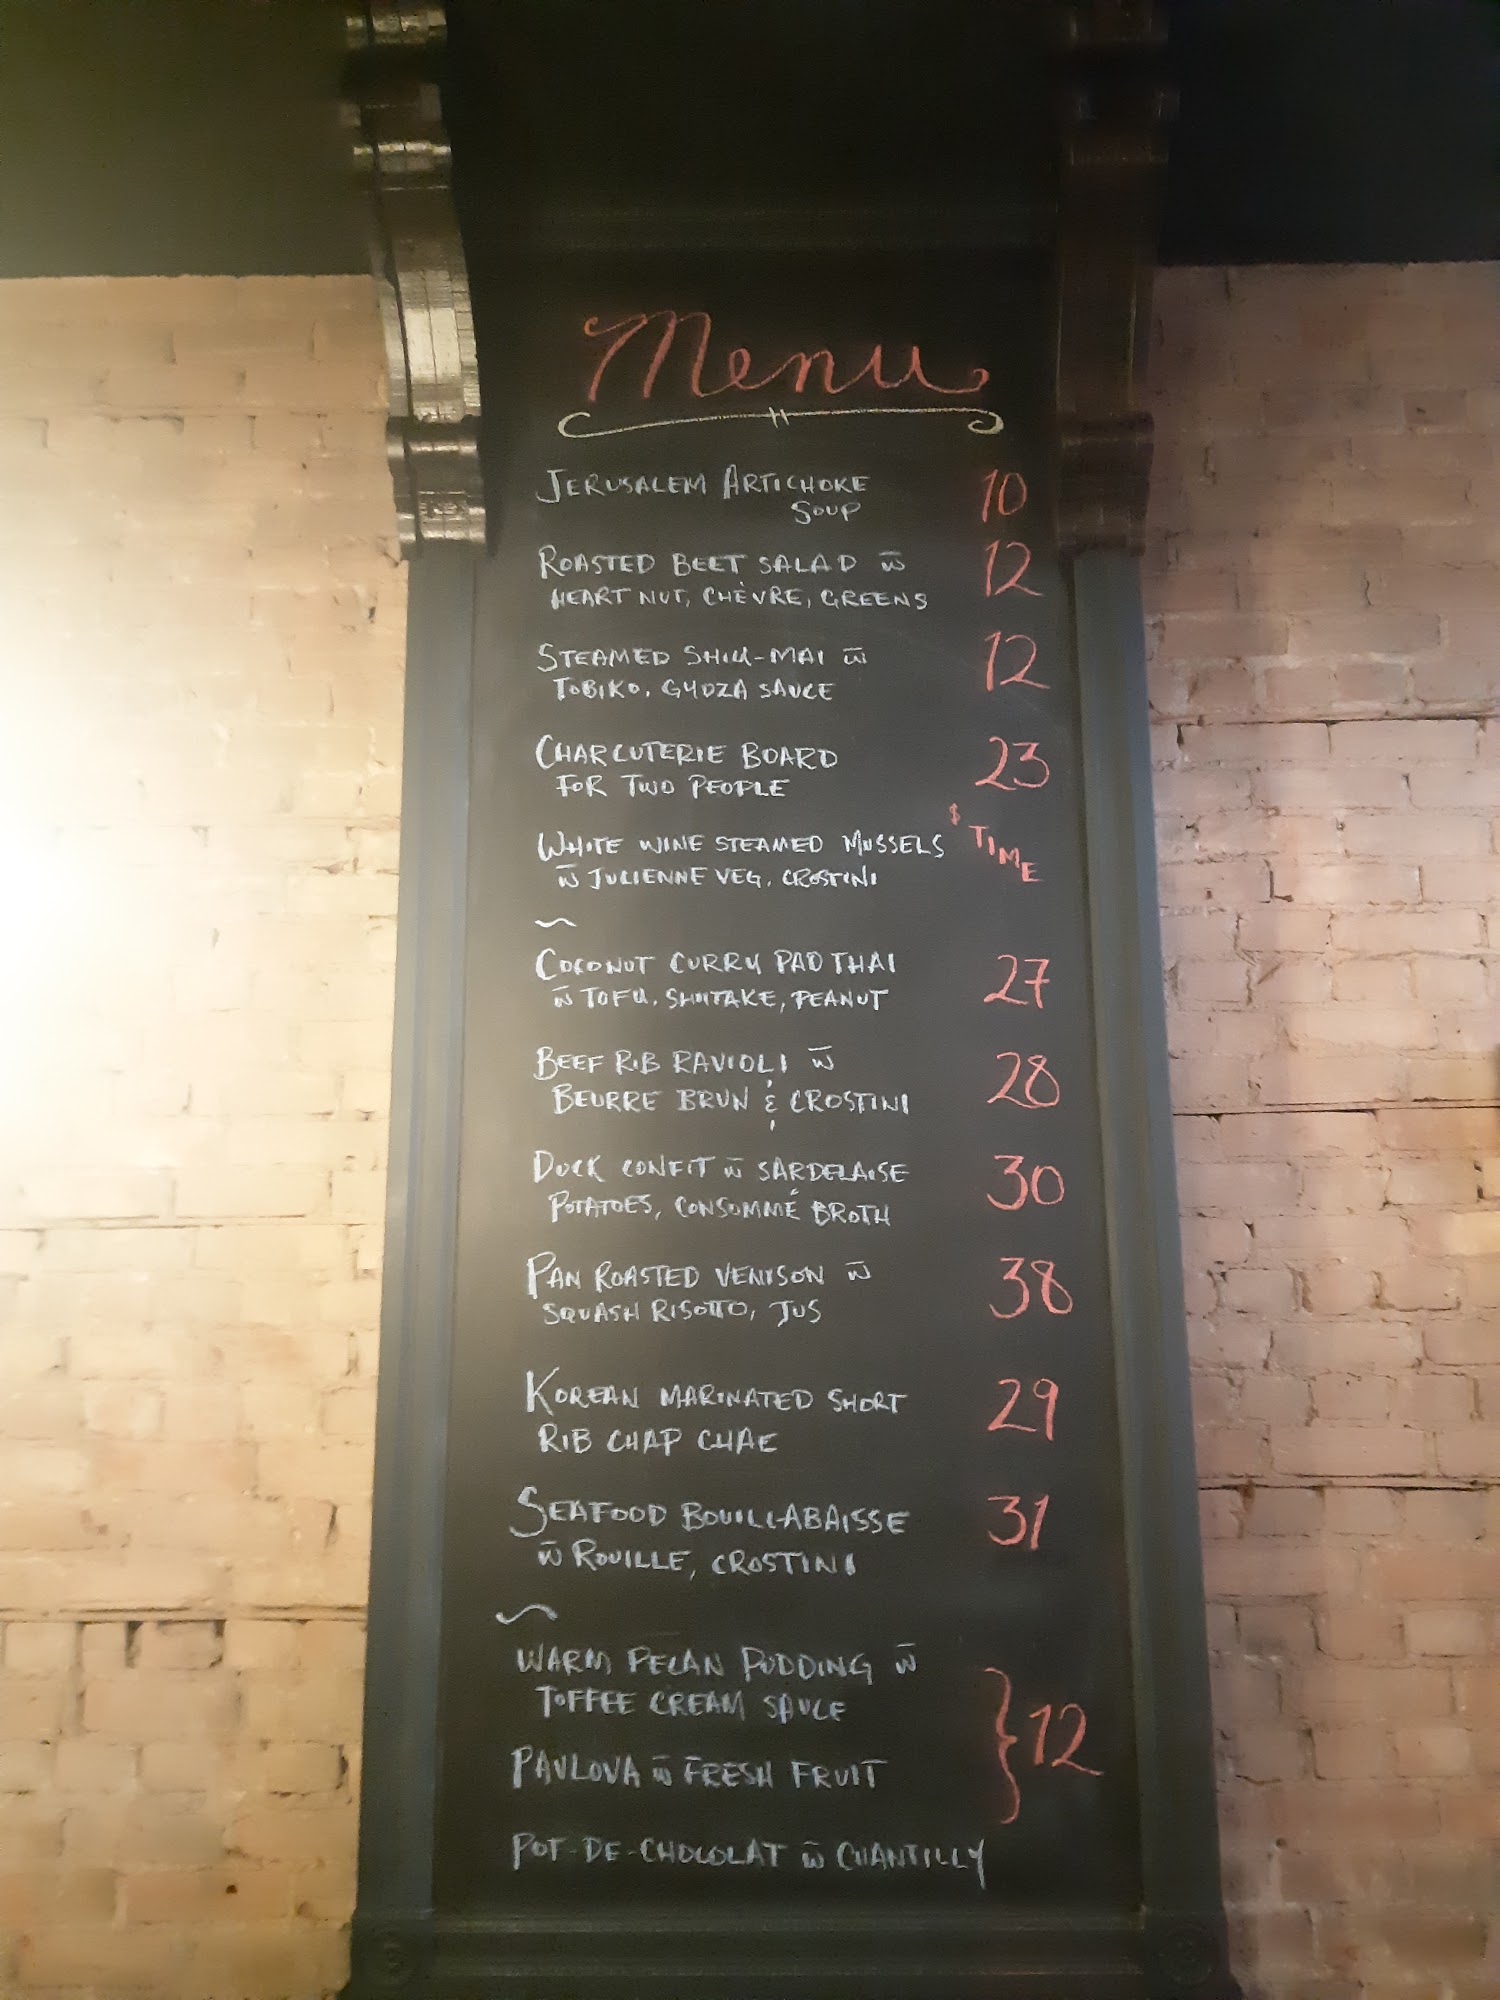 Menu
JERUSALEM ARTICHOKE 10
SOUP
ROASTED BEET SALAD w̄ 12
HEART NUT, CHÈVRE, GREENS
STEAMED SHIU-MAI w̄ 12
TOBIKO, GYOZA SAUCE
CHARCUTERIE BOARD 23
FOR TWO PEOPLE
WHITE WINE STEAMED MUSSELS $ TIME
w̄ JULIENNE VEG, CROSTINI
~
COCONUT CURRY PAD THAI 27
w̄ TOFU, SHIITAKE, PEANUT
BEEF RIB RAVIOLI w̄ 28
BEURRE BRUN & CROSTINI
DUCK CONFIT w̄ SARDELAISE 30
POTATOES, CONSOMMÉ BROTH
PAN ROASTED VENISON w̄ 38
SQUASH RISOTTO, JUS
KOREAN MARINATED SHORT 29
RIB CHAP CHAE
SEAFOOD BOUILLABAISSE 31
w̄ ROUILLE, CROSTINI
~
WARM PECAN PUDDING w̄
TOFFEE CREAM SAUCE
} 12
PAVLOVA w̄ FRESH FRUIT
POT-DE-CHOCOLAT w̄ CHANTILLY